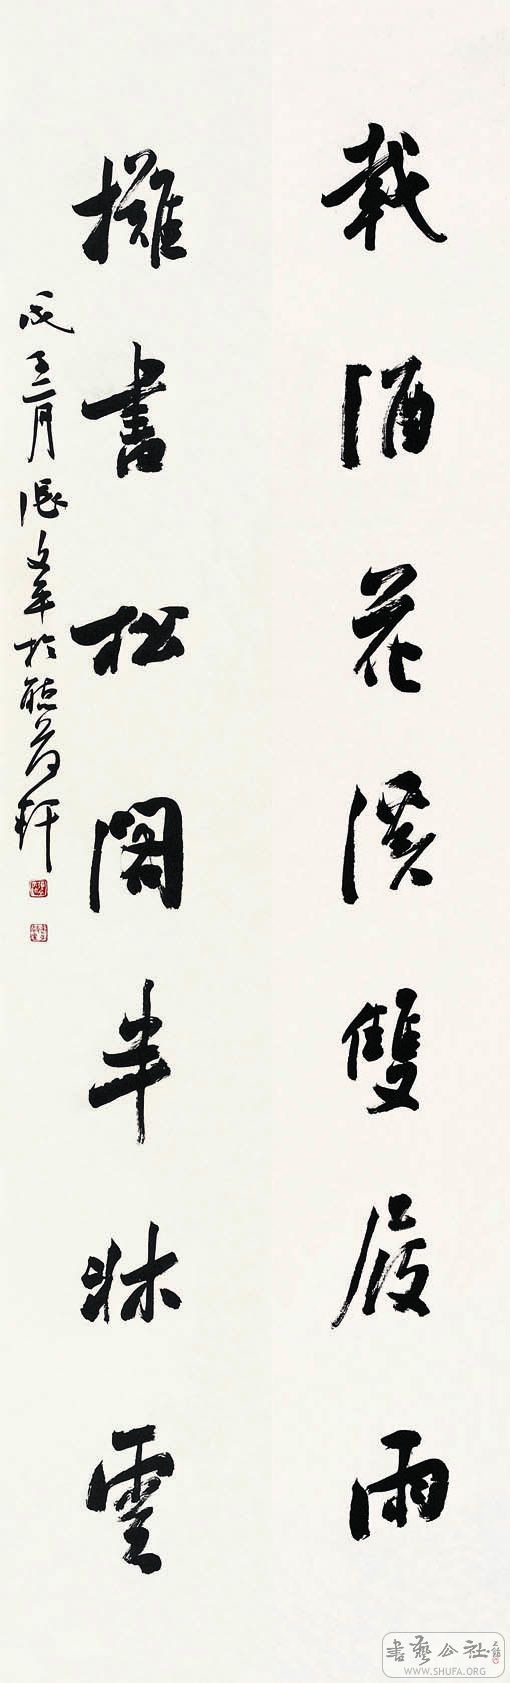 載酒花溪雙屐雨
攤書松閣半牀雲
戊子二月張文平於軒
書藝公社
WWW.SHUFA.ORG